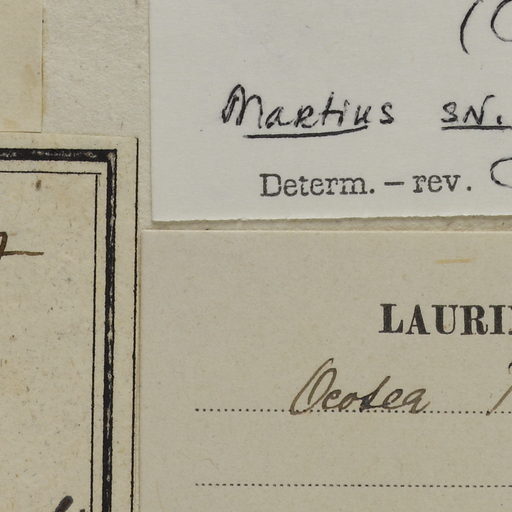 Martius sn.
Determ. – rev.
LAURI
Ocotea